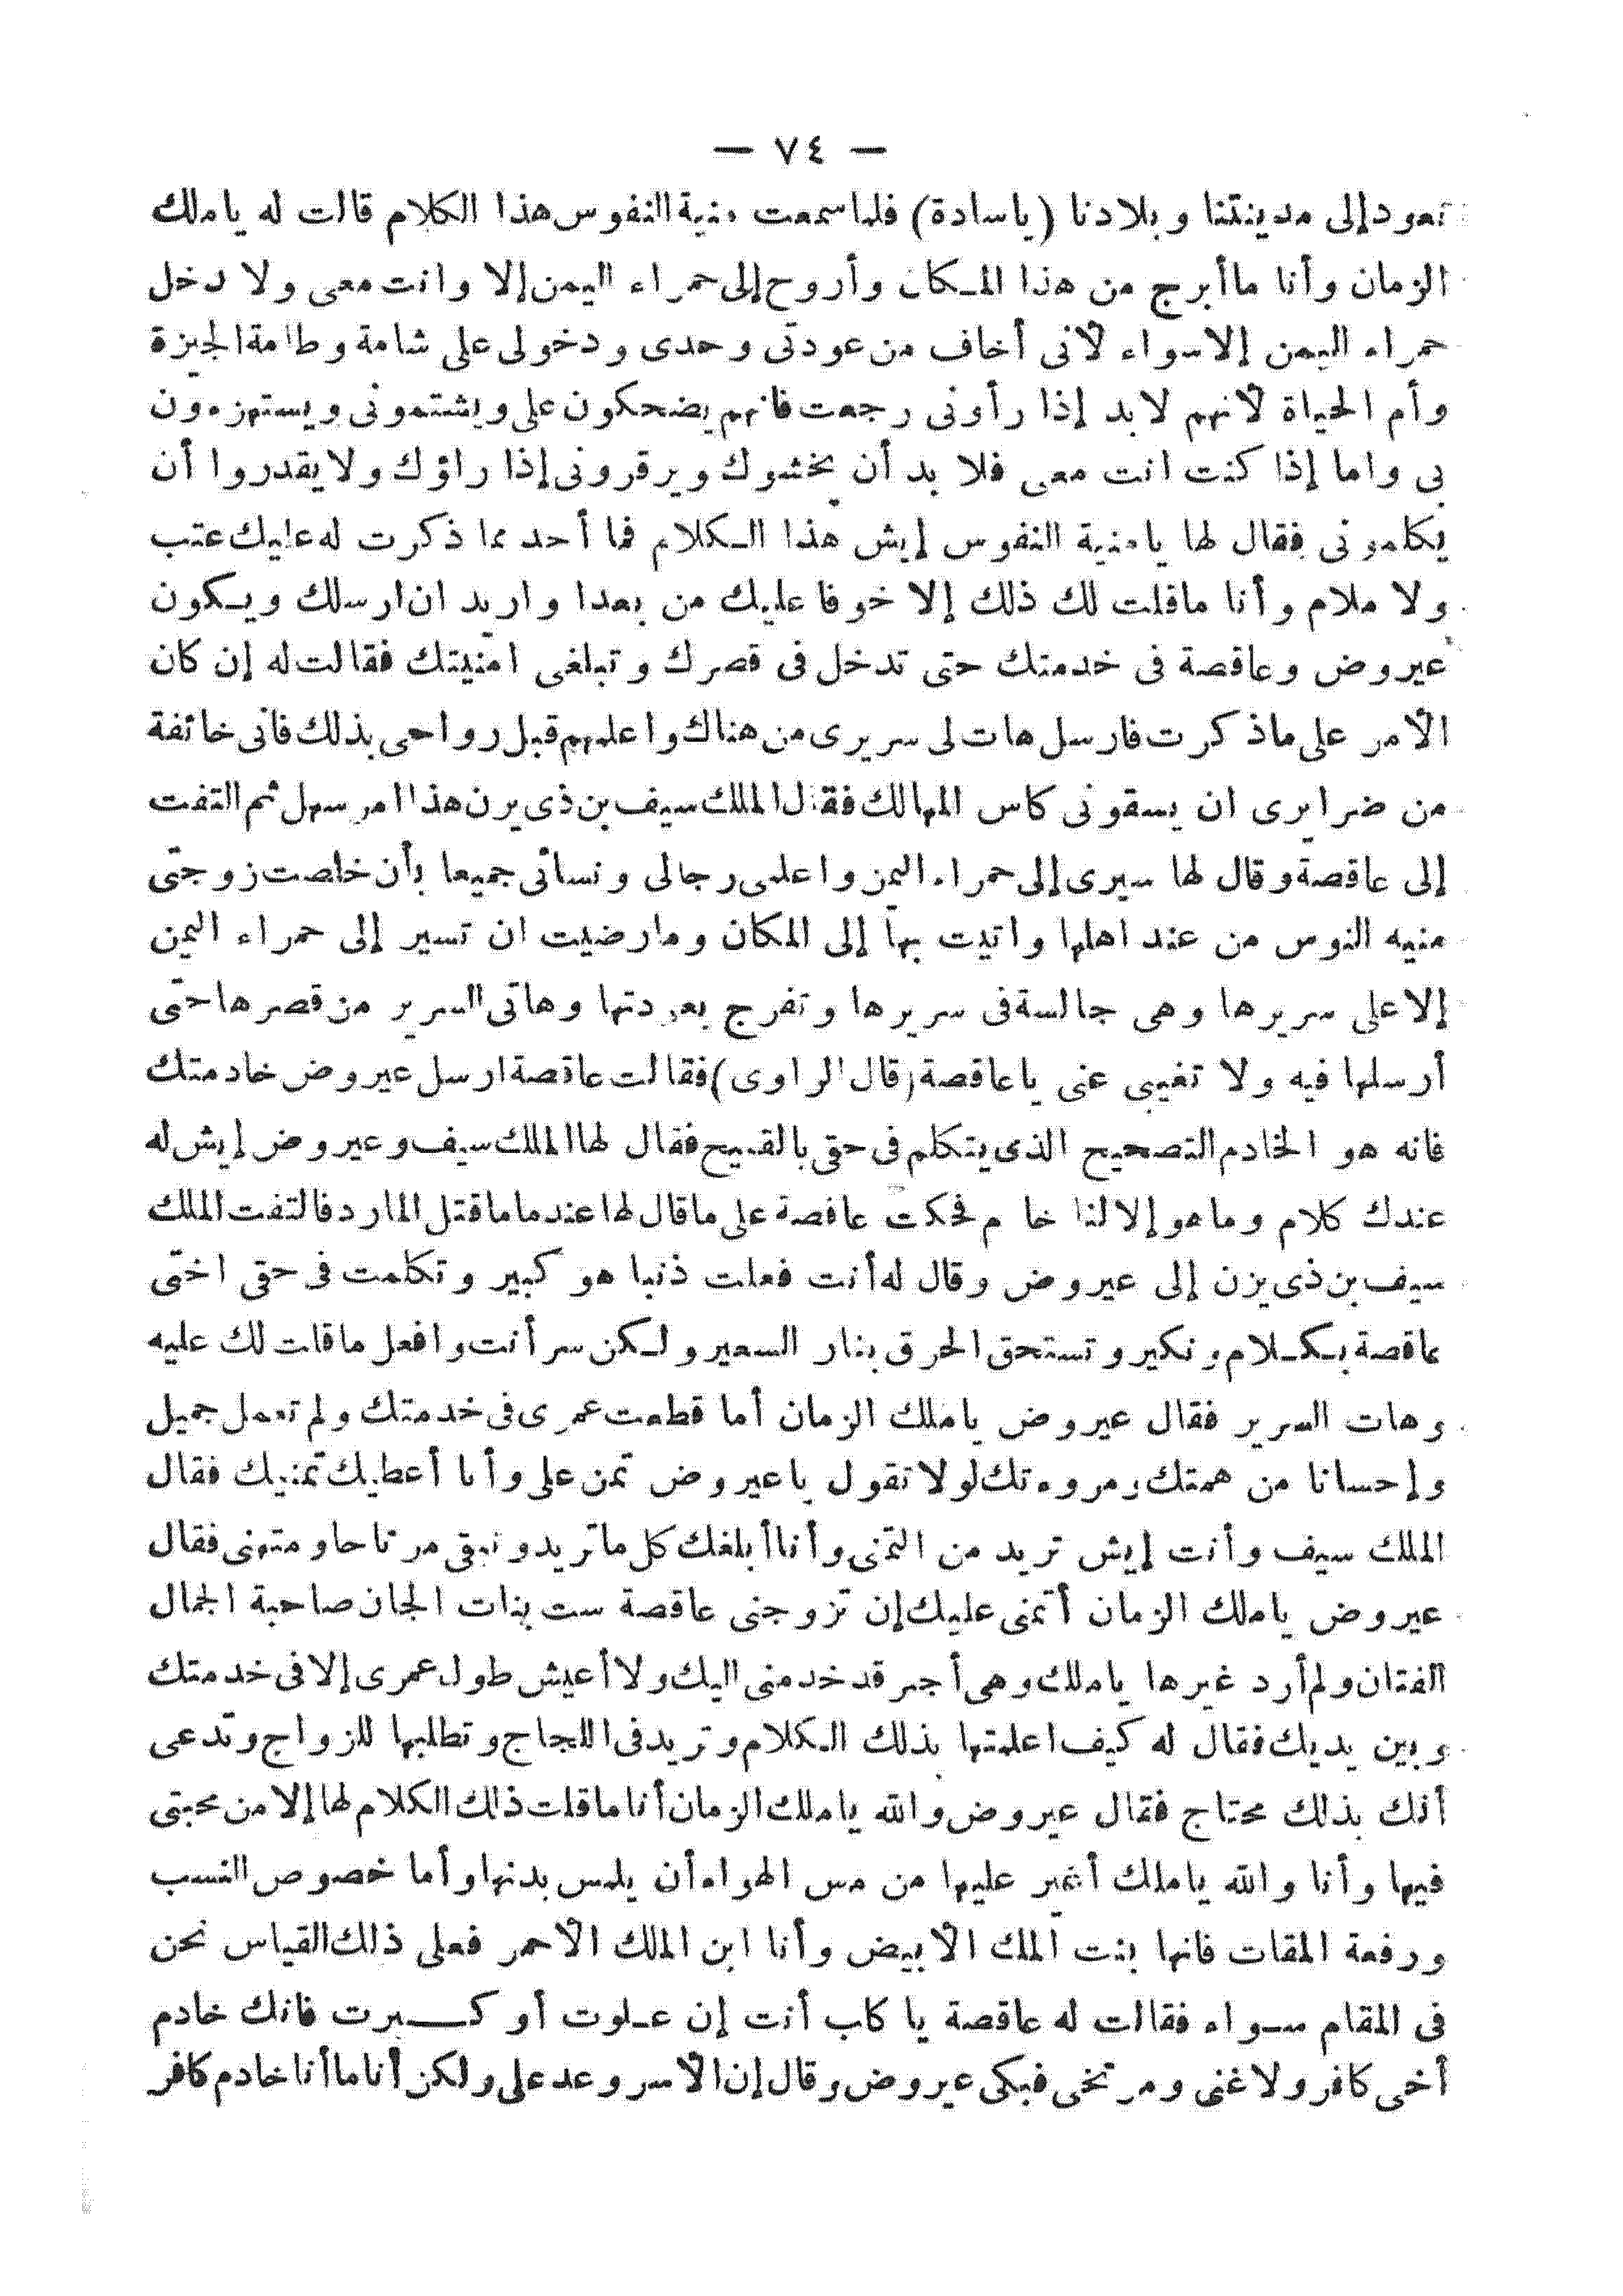 — ٧٤ —
نعود إلى مدينتنا وبلادنا (ياسادة) فلما سمعت منية النفوس هذا الكلام قالت له ياملك
الزمان وأنا ماأبرح من هذا المكان وأروح إلى حمراء اليمن إلا وانت معى ولا دخل
حمراء اليمن إلا سواء لأنى أخاف من عودتى وحدى ودخولى على شامة وطامة الجيزة
وأم الحياة لأنهم لا بد إذا رأونى رجعت فانهم يضحكون على ويشتمونى ويستهزءون
بى واما إذا كنت انت معى فلا بد أن يخشوك ويرقرونى إذا راؤك ولا يقدروا أن
يكلمونى فقال لها يامنية النفوس إيش هذا الكلام فما أحد مما ذكرت له عليك عتب
ولا ملام وأنا ماقلت لك ذلك إلا خوفا عليك من بعدا واريد ان ارسلك ويكون
عيروض وعاقصة فى خدمتك حتى تدخل فى قصرك وتبلغى امنيتك فقالت له إن كان
الأمر على ماذكرت فارسل هات لى سريرى من هناك واعلمهم قبل رواحى بذلك فانى خائفة
من ضرايرى ان يسقونى كاس المهالك فقال الملك سيف بن ذى يزن هذا امر سهل ثم التفت
إلى عاقصة وقال لها سيرى إلى حمراء اليمن واعلمى رجالى ونسائى جميعا بأن خلصت زوجتى
منيه النوس من عند اهلها واتيت بها إلى المكان ومارضيت ان تسير إلى حمراء اليمن
إلا على سريرها وهى جالسة فى سريرها وتفرج بعودتها وهاتى السرير من قصرها حتى
أرسلها فيه ولا تغيبى عنى ياعاقصة (قال الراوى) فقالت عاقصة ارسل عيروض خادمتك
فانه هو الخادم التصحيح الذى يتكلم فى حقى بالقبيح فقال لها الملك سيف وعيروض إيش له
عندك كلام وماهو إلا لنا خا م فحكت عافصة على ماقال لها عندما ماقتل المارد فالتفت الملك
سيف بن ذى يزن إلى عيروض وقال له أنت فعلت ذنبا هو كبير وتكلمت فى حقى اختى
عاقصة بكلام ونكير وتستحق الحرق بنار السعير ولكن سر أنت وافعل ماقلت لك عليه
وهات السرير فقال عيروض ياملك الزمان أما قطعت عمرى فى خدمتك ولم تعمل جميل
وإحسانا من همتك ومروءتك لولا تقول ياعيروض تمن على وأنا أعطيك تمنيك فقال
الملك سيف وأنت إيش تريد من التمنى وأنا أبلغك كل ماتريد وتبقى مرتاحا ومتهنى فقال
عيروض ياملك الزمان أتمنى عليك إن تزوجنى عاقصة ست بنات الجان صاحبة الجمال
الفتان ولم أرد غيرها ياملك وهى أجر قد خدمنى اليك ولا أعيش طول عمرى إلا فى خدمتك
وبين يديك فقال له كيف اعلمتها بذلك الكلام وتريد فى اللجاج وتطلبها للزواج وتدعى
أنك بذلك محتاج فقال عيروض والله ياملك الزمان أنا ماقلت ذلك الكلام لها إلا من محبتى
فيها وأنا والله ياملك أغير عليها من مس الهواء أن يلمس بدنها وأما خصوص النسب
ورفعة المقات فانها بنت الملك الأبيض وأنا ابن الملك الأحمر فعلى ذلك القياس نحن
فى المقام سواء فقالت له عاقصة يا كلب أنت إن علوت أو كبرت فانك خادم
أخى كافر ولا غنى ومرتخى فبكى عيروض وقال إن الأسر وعد على ولكن أنا ماأنا خادم كافر